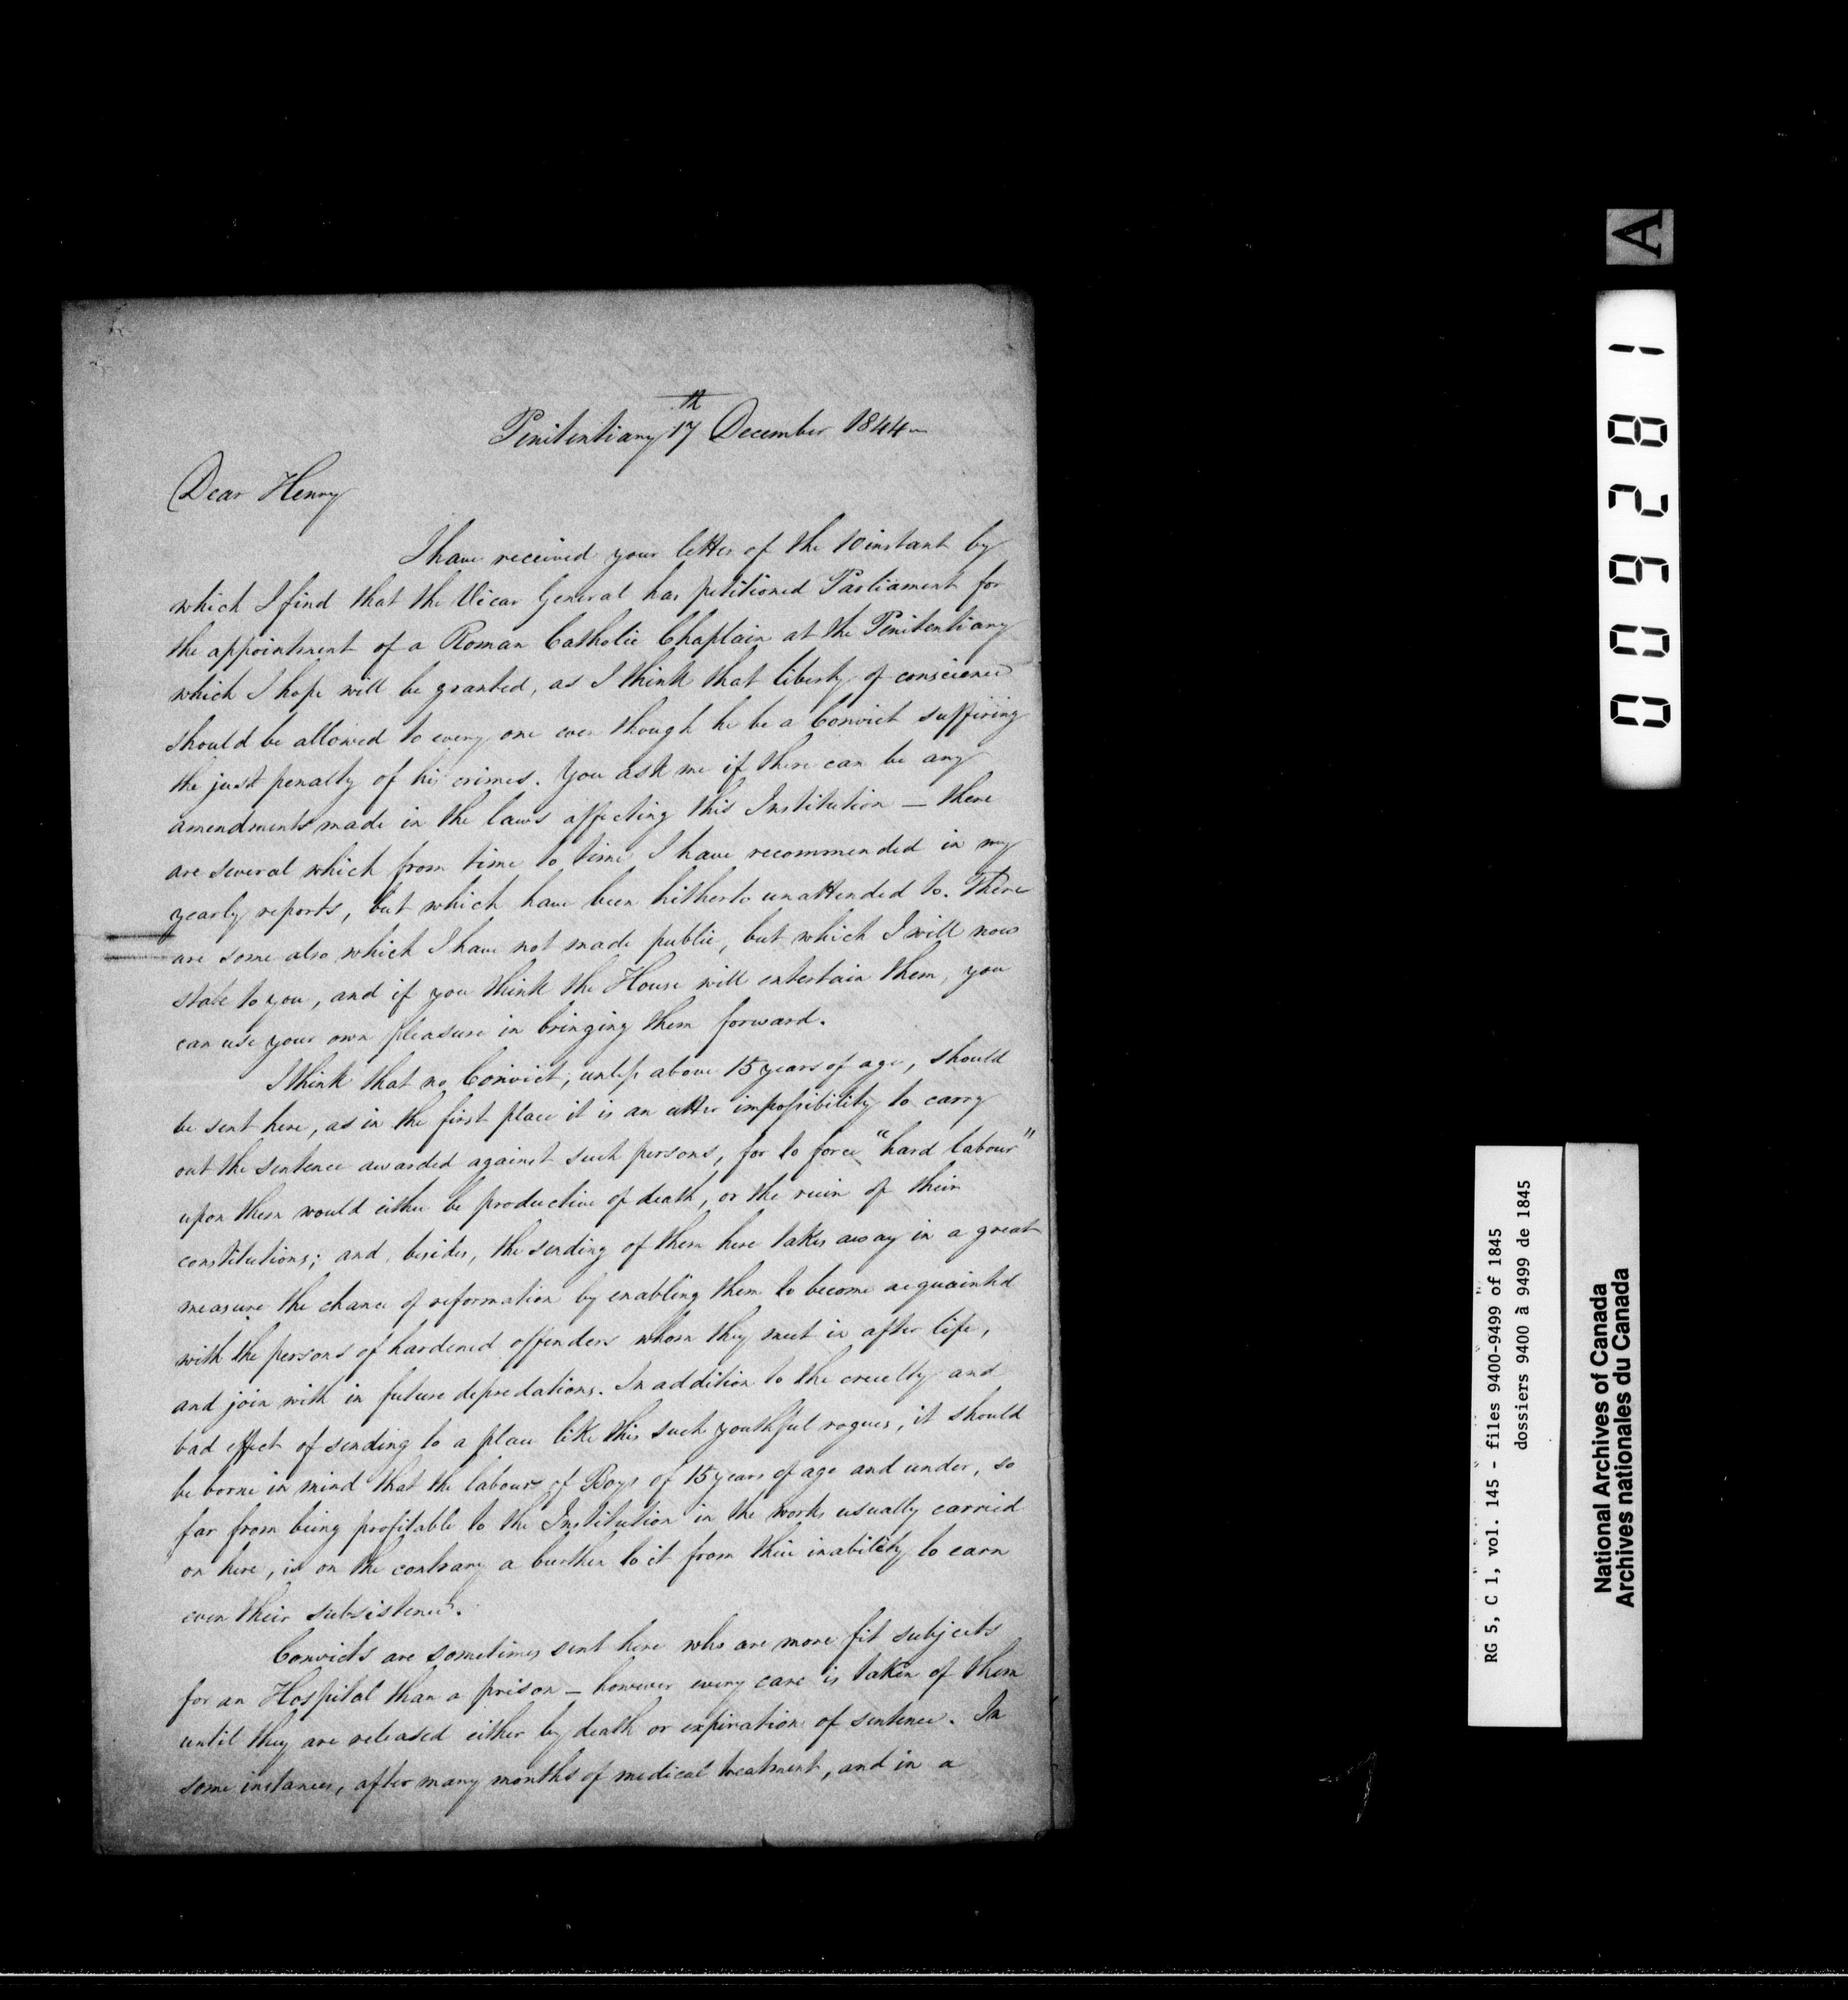 Penitentiary 17th December 1844
Dear Henry
I have received your letter of the 10 instant by
which I find that the Vicar General has petitioned Parliament for
the appointment of a Roman Catholic Chaplain at the Penitentiary
which I hope will be granted, as I think that liberty of conscience
should be allowed to every one even though he be a Convict suffering
the just penalty of his crimes. You ask me if there can be any
amendments made in the laws affecting this Institution — there
are several which from time to time I have recommended in my
yearly reports, but which have been hitherto unattended to. There
are some also which I have not made public, but which I will now
state to you, and if you think the House will entertain them, you
can use your own pleasure in bringing them forward.
I think that no Convict, unless above 15 years of age, should
be sent here, as in the first place it is an utter impossibility to carry
out the sentence awarded against such persons, for to force "hard labour"
upon them would either be productive of death, or the ruin of their
constitutions; and, besides, the sending of them here takes away in a great
measure the chance of reformation by enabling them to become acquainted
with the persons of hardened offenders whom they meet in after life,
and join with in future depredations. In addition to the cruelty and
bad effect of sending to a place like this such youthful rogues, it should
be borne in mind that the labours of Boys of 15 years of age and under, so
far from being profitable to the Institution in the works usually carried
on here, is on the contrary a burthen to it from their inability to earn
even their subsistence.
Convicts are sometimes sent here who are more fit subjects
for an Hospital than a prison — however every care is taken of them
until they are released either by death or expiration of sentence. In
some instances, after many months of medical treatment, and in a
A
009281
RG 5, C 1, vol. 145 - files 9400-9499 of 1845
dossiers 9400 à 9499 de 1845
National Archives of Canada
Archives nationales du Canada